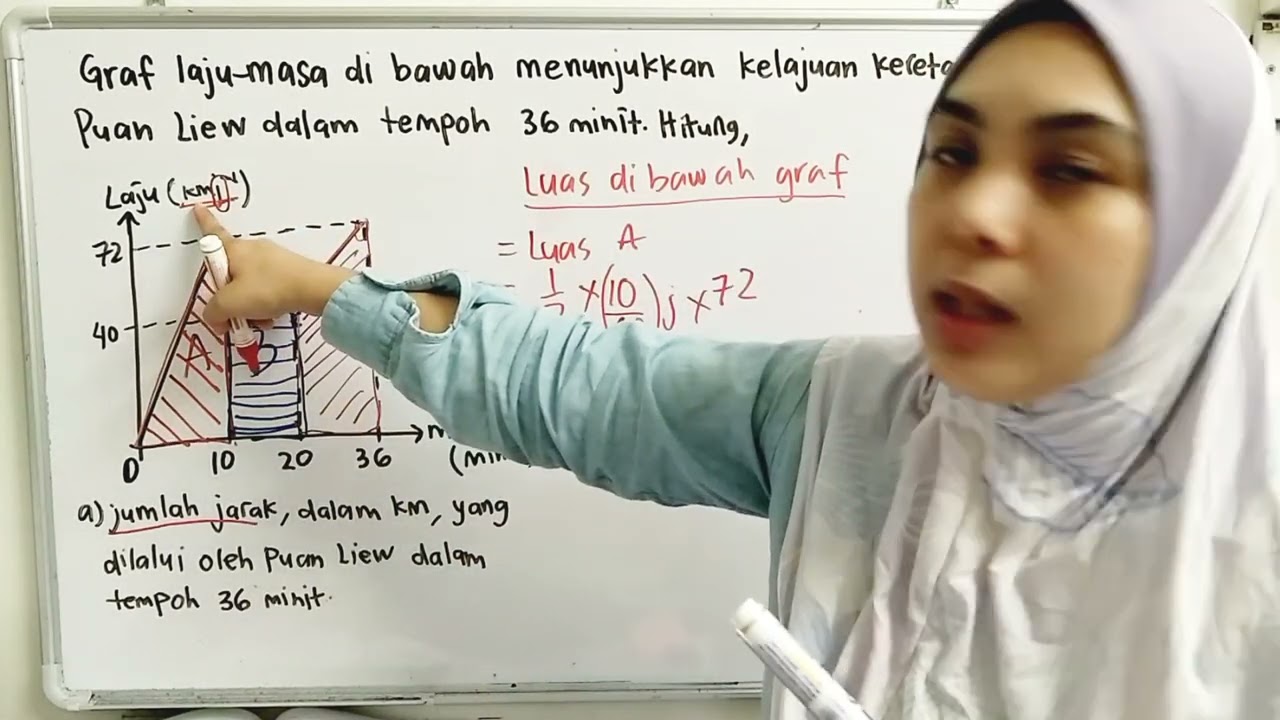 Graf laju-masa di bawah menunjukkan kelajuan kereta
Puan Liew dalam tempoh 36 minit. Hitung,
Laju (kmj⁻¹)
72
40
A
B
0 10 20 36
Luas di bawah graf
= Luas A
= 1/2 × (10/ )j × 72
a) jumlah jarak, dalam km, yang
dilalui oleh Puan Liew dalam
tempoh 36 minit.